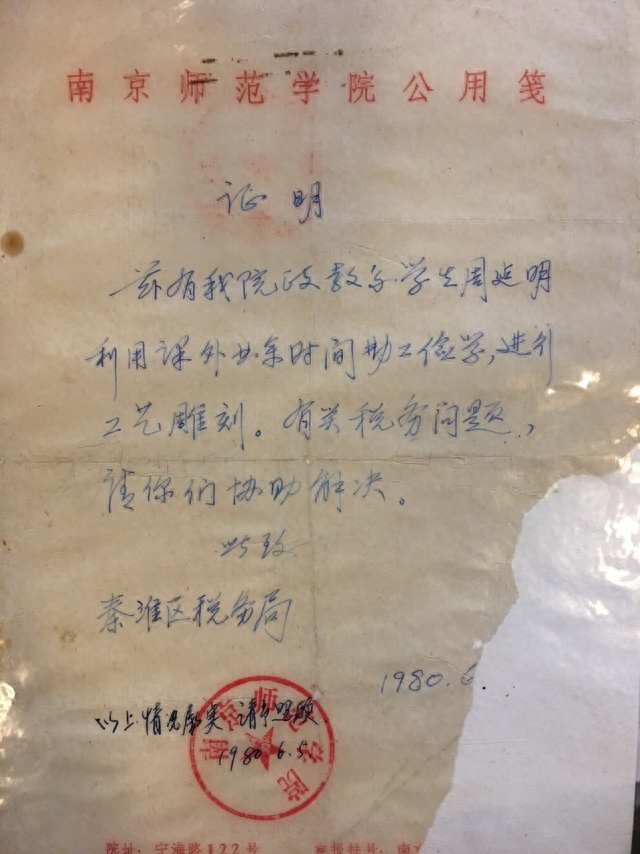 南京师范学院公用笺
证明
兹有我院政教系学生周延明
利用课外业余时间勤工俭学,进行
工艺雕刻。有关税务问题,
请你们协助解决。
此致
秦淮区税务局
1980.6
以上情况属实 请予照顾
1980 6.5.
南京师范学院
院址:宁海路122号 电报挂号:南